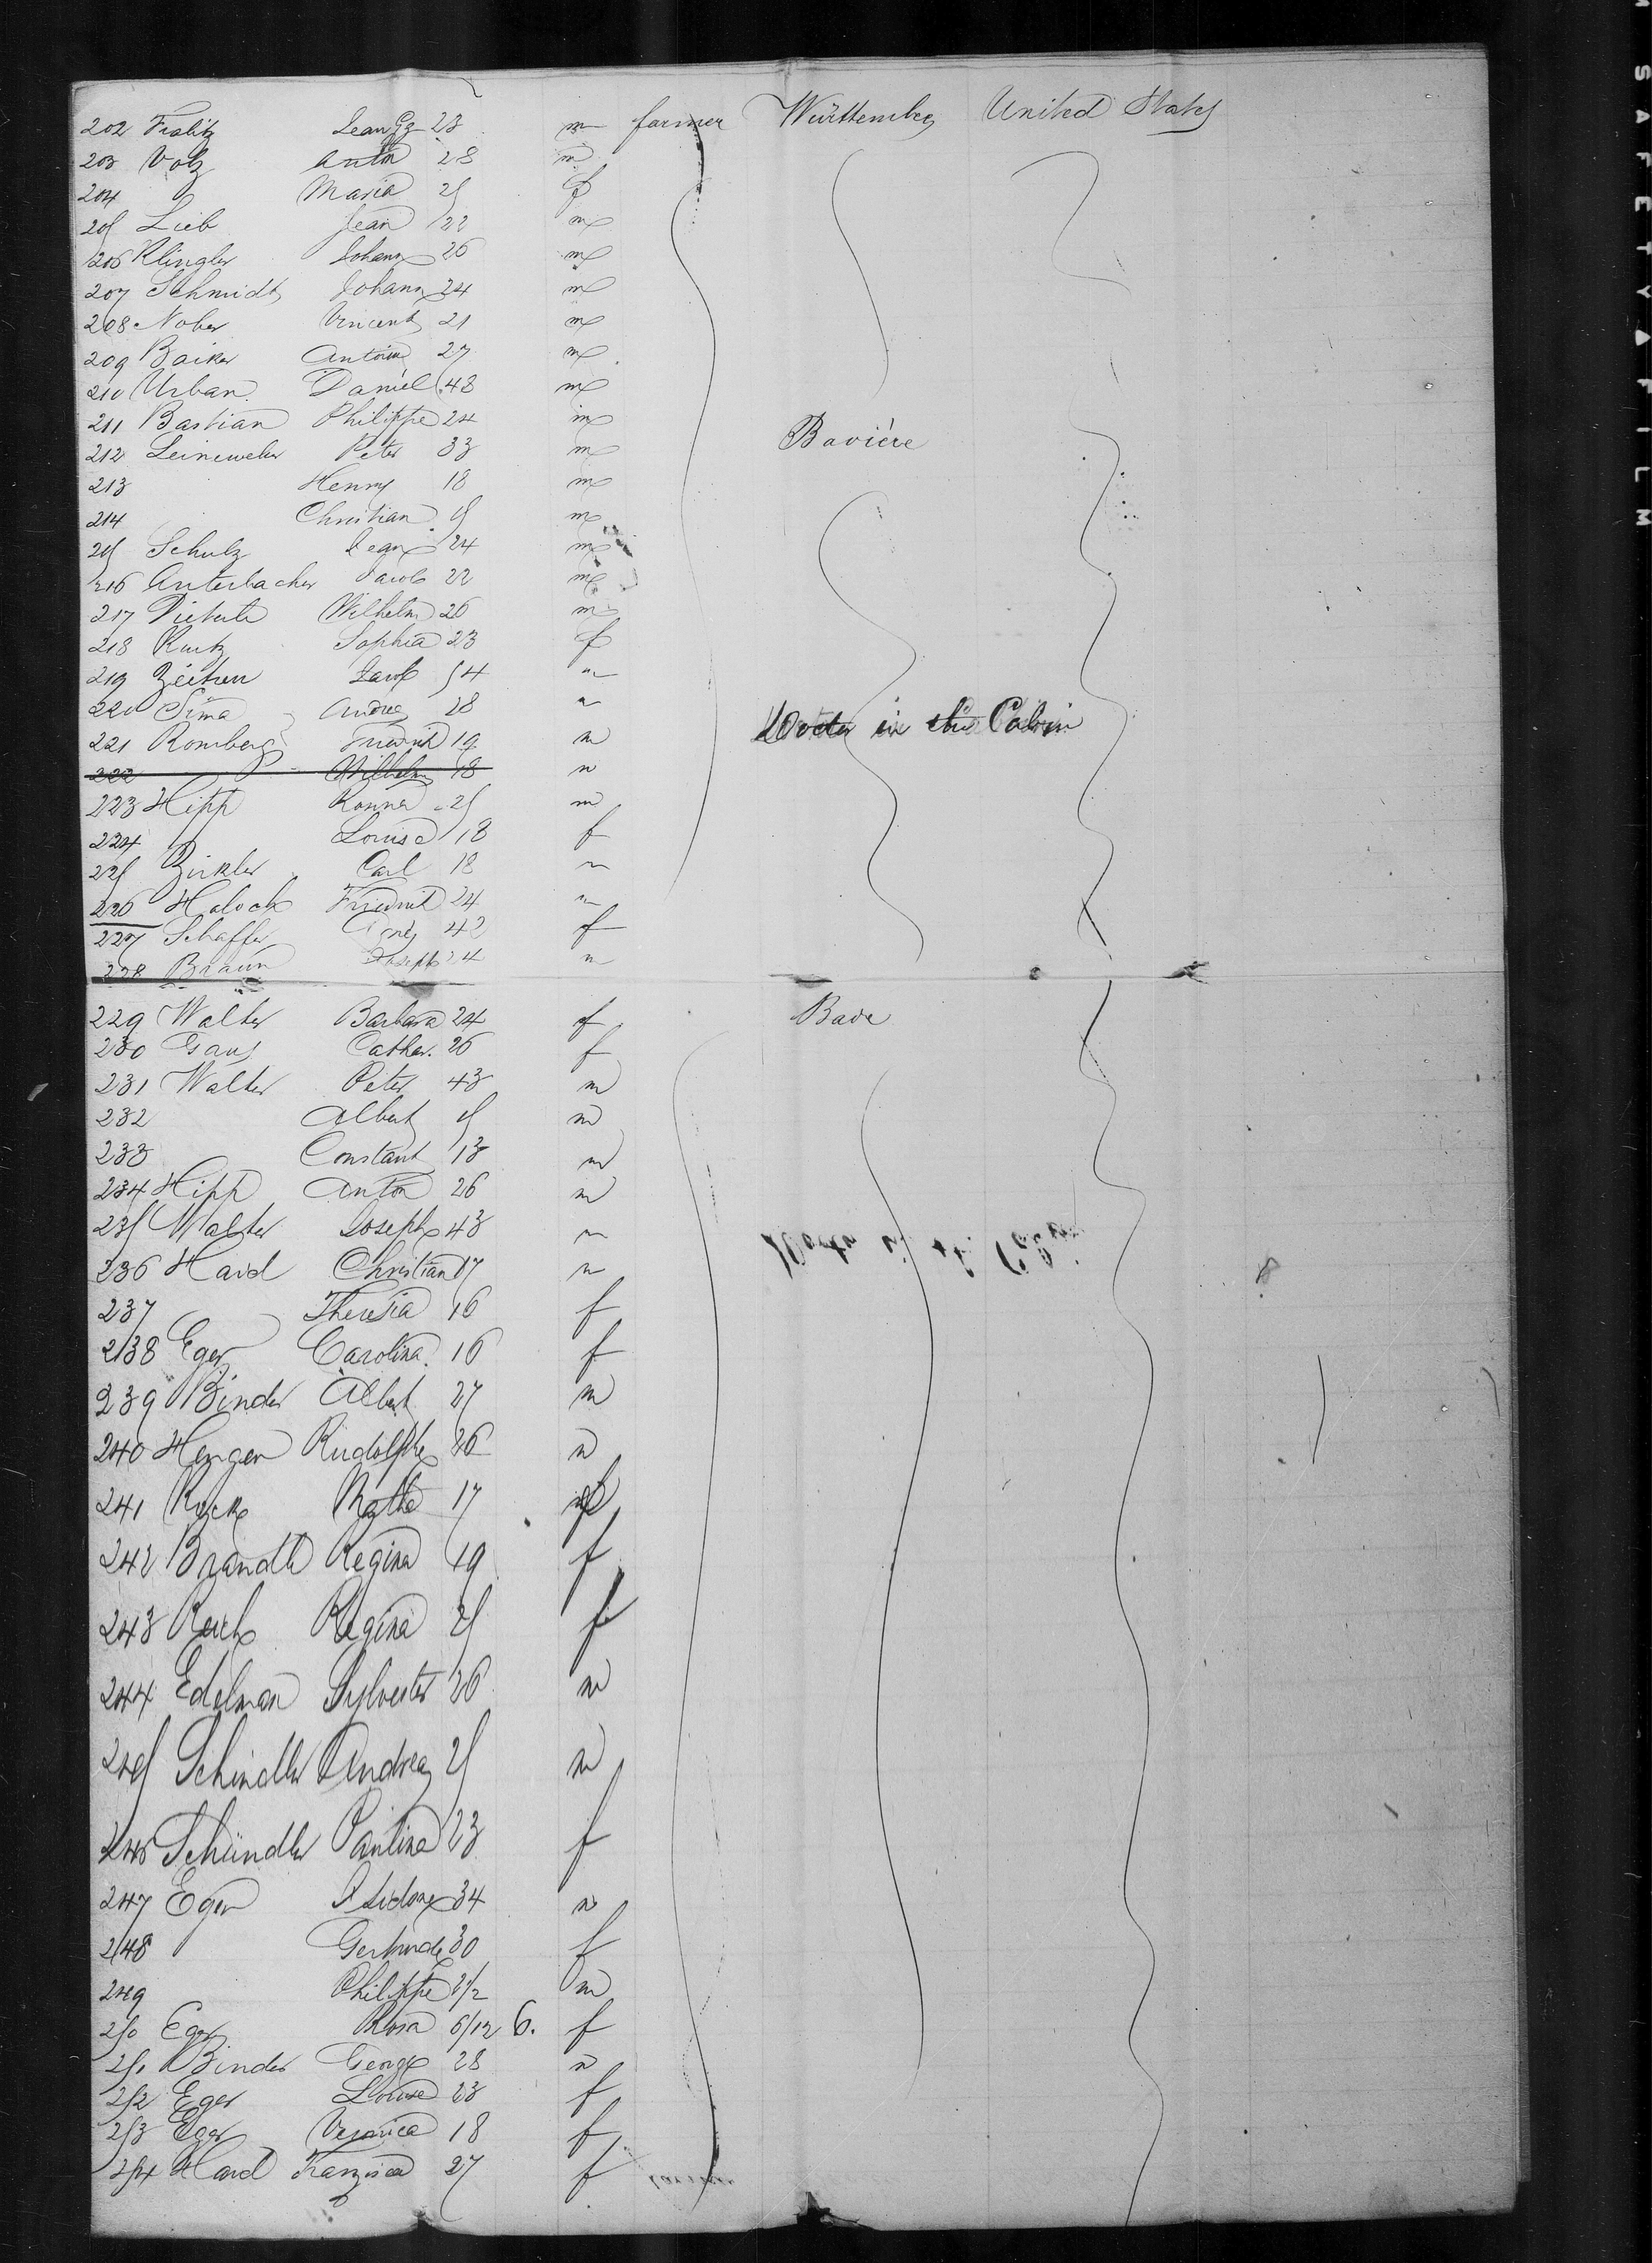 202 Jean Gg 23 m farmer Württemberg United States
203 Volz Anton 28 m
204 Maria 25 f
205 Lieb Jean 22 m
206 Klingler Johann 26 m
207 Schmidt Johann 24 m
208 Nober Vincent 21 m
209 Baiker Antoine 27 m
210 Urban Daniel 48 m
211 Bastian Philippe 24 m Bavière
212 Leineweber Peter 33 m
213 Henry 18 m
214 Christian 5 m
215 Schulz Jean 24 m
216 Anterbacher Jacob 22 m
217 Wilhelm 26 m
218 Kurtz Sophia 23 f
219 Jacob 54 m
220 Sima Andrea 28 m Works in the Cabin
221 Romberg Friedrich 19 m
222 Wilhelm 18 m
223 Hipp 25 m
224 Louise 18 f
225 Zirkler Carl 18 m
226 Friedrich 24 m
227 Schaffer 42 f
228 Braun Joseph 24 m
229 Walter Barbara 24 f Bade
230 Gaus Cather. 26 f
231 Walter Peter 43 m
232 Albert 5 m
233 Constant 13 m
234 Hipp Anton 26 m
235 Walter Joseph 43 m
236 Haid Christian 17 m
237 Theresia 16 f
238 Eger Carolina 16 f
239 Binder Albert 27 m
240 Hengen Rudolphe 26 m
241 17
242 Brandle Regina 19 f
243 Regina 25 f
244 Edelman Sylvester 26 m
245 Schindler Andreas 25 m
246 Schündler Paulina 23 f
247 Eger Isidore 34 m
248 Gertrude 30 f
249 Philippe 2 1/2 m
250 Eger Rosa 6/12 6. f
251 Binder George 28 m
252 Eger Louise 23 f
253 Eger Veronica 18 f
254 Haid Franzisca 27 f
SAFETY▲FILM